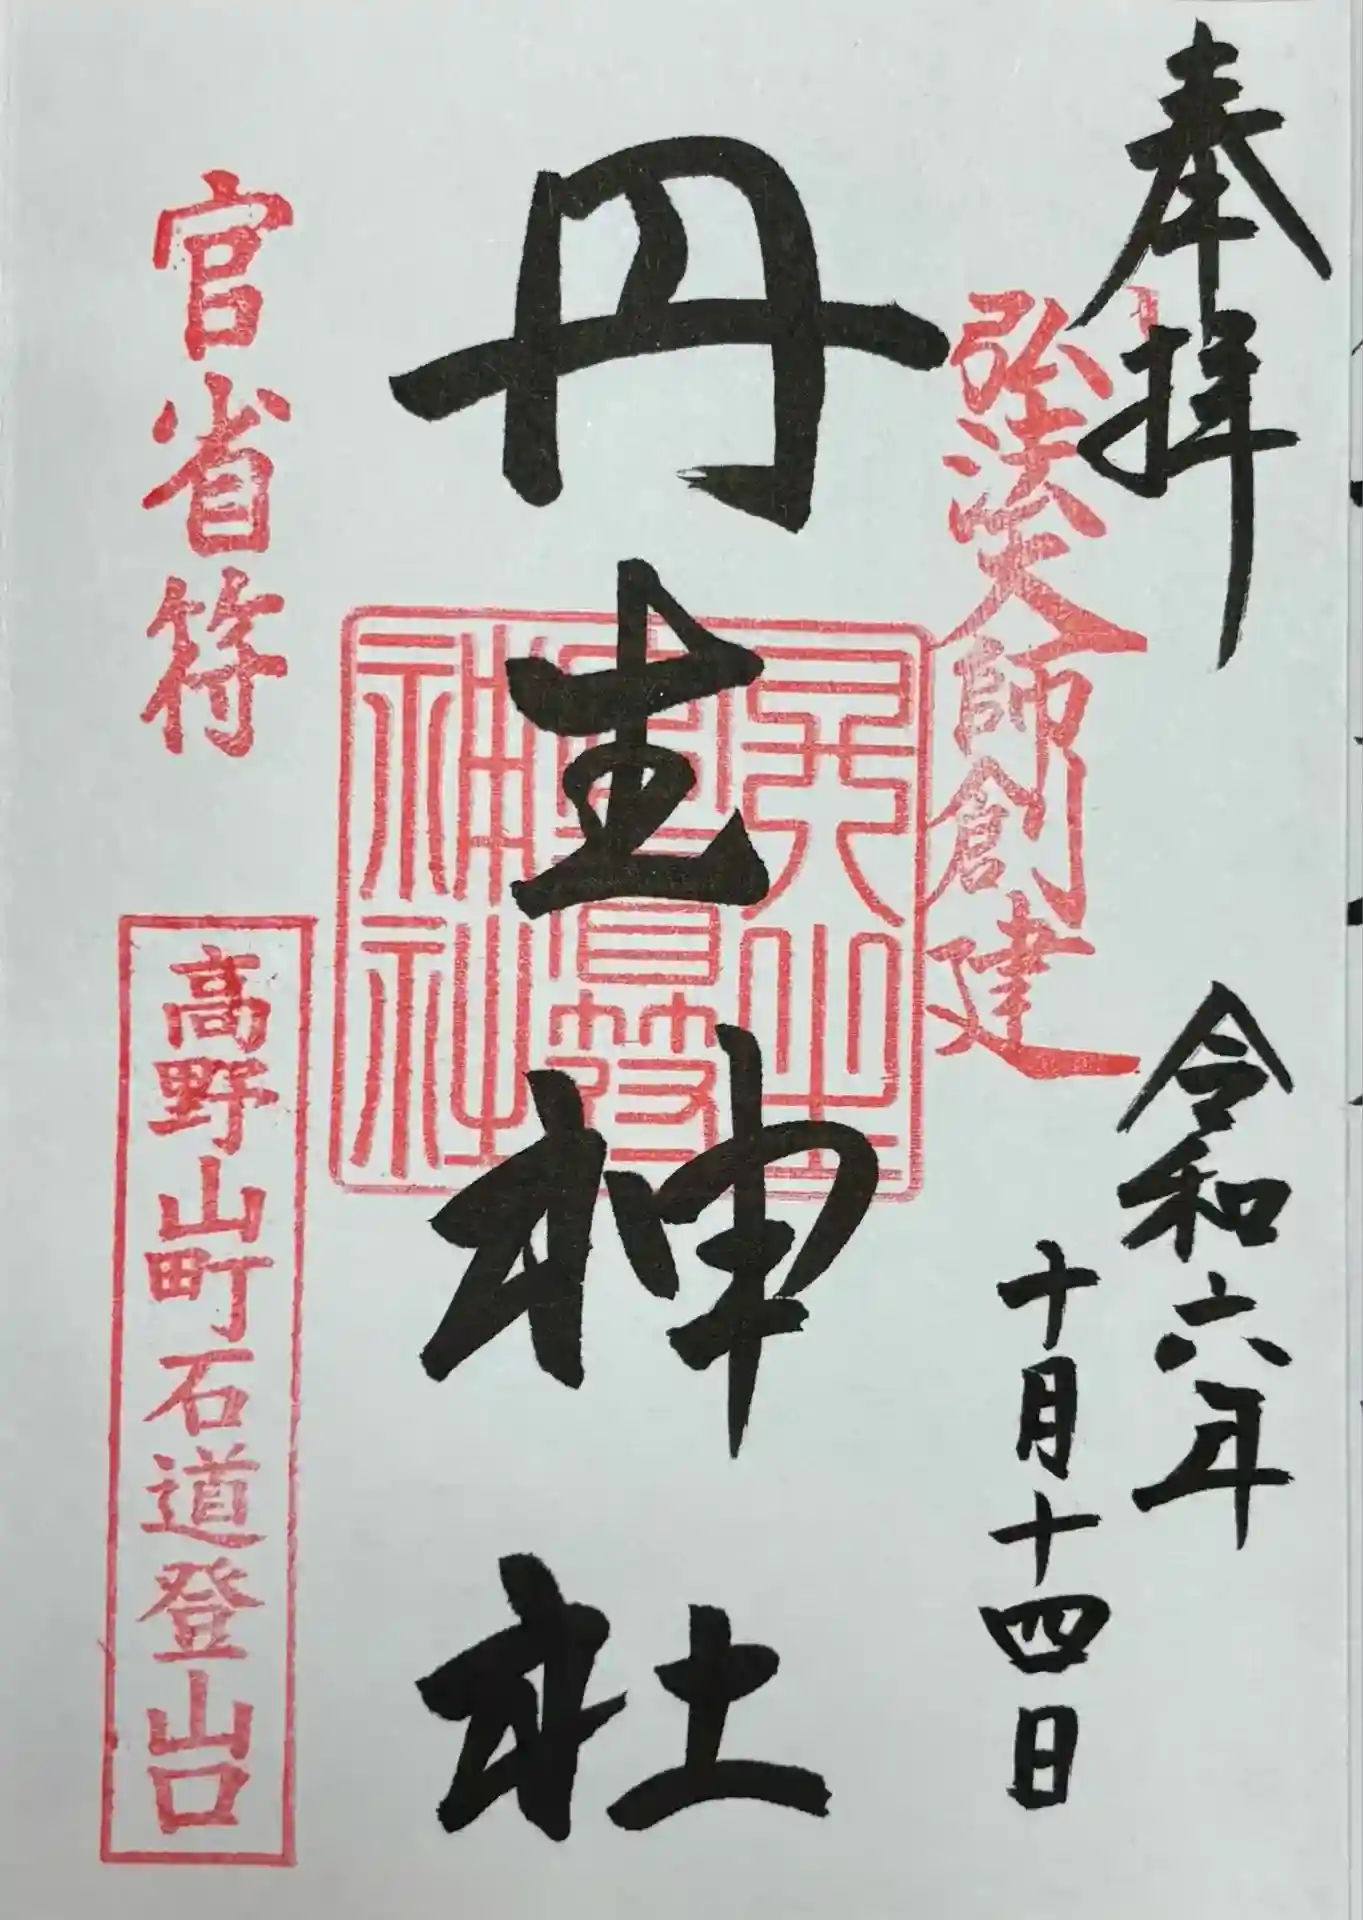 奉拝
令和六年
十月十四日
弘法大師創建
丹生神社
官省符
神社
官省符
高野山町石道登山口